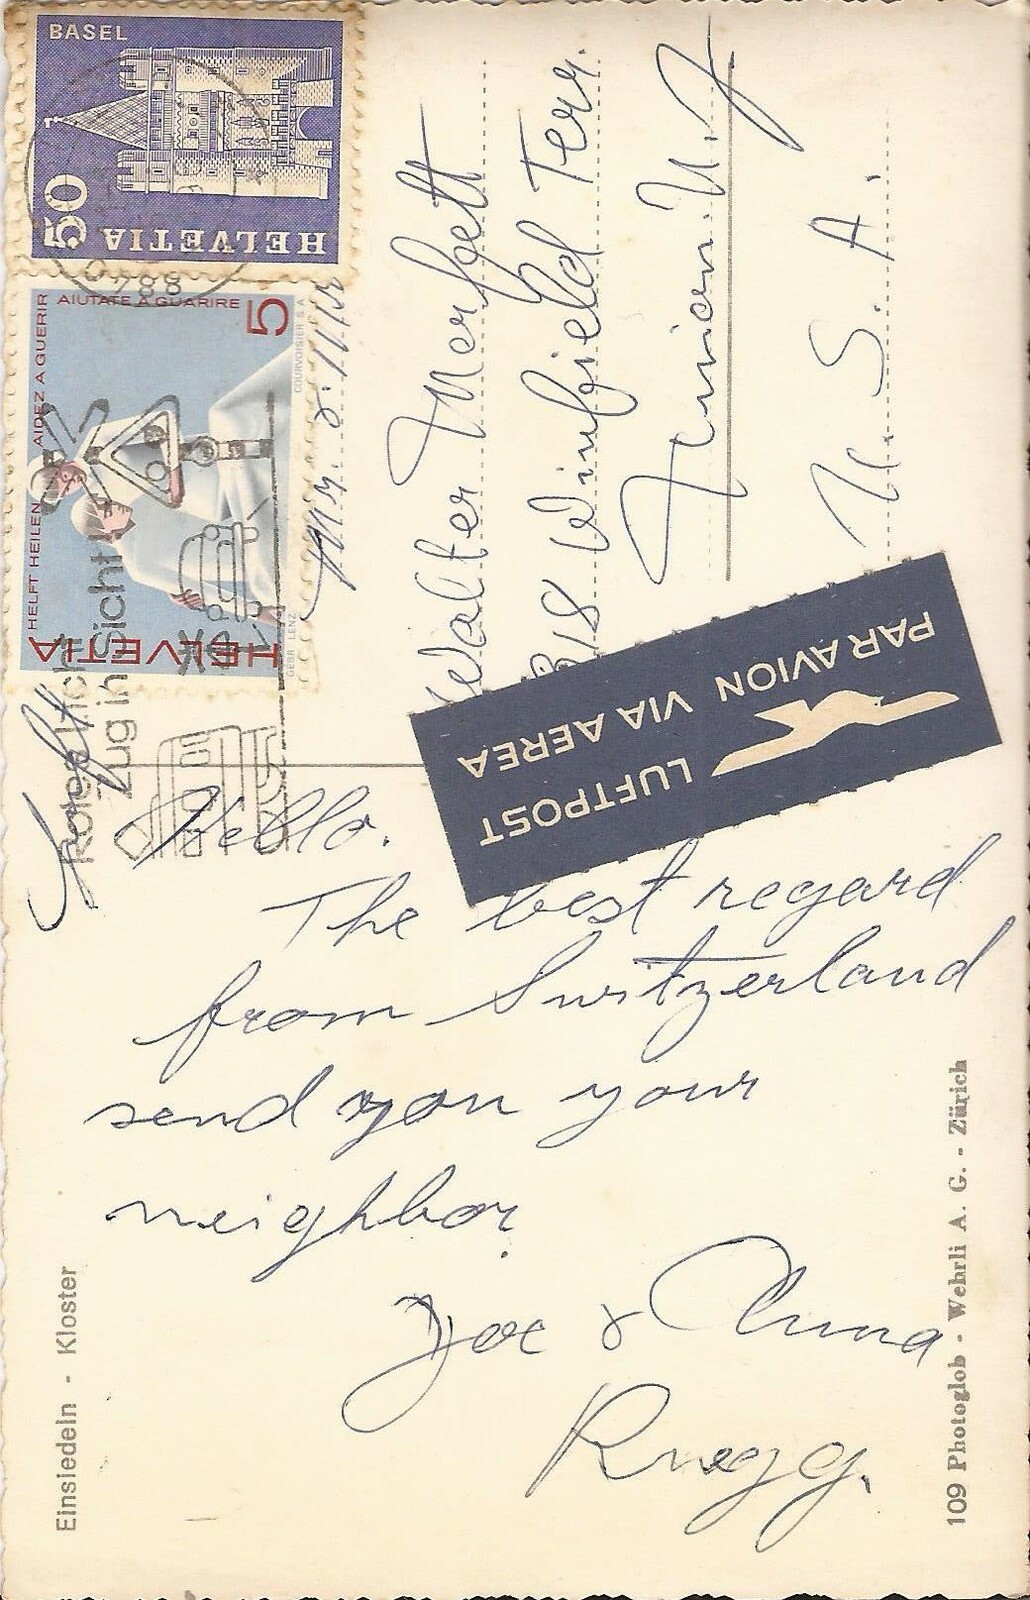 BASEL
50
HELVETIA
8840
AIUTATE A GUARIRE
5
AIDEZ A GUERIR
HELFT HEILEN
HELVETIA
COURVOISIER S.A
GEBR. LENZ
Rotes Licht
Zug in Sicht!
Walter Merfelt
318 Winfield Terr.
Union. N. J.
U. S. A.
LUFTPOST
PAR AVION VIA AEREA
Hello.
The best regard
from Switzerland
send you your
neighbor
Joe & Anna
Ruegg.
Einsiedeln - Kloster
109 Photoglob - Wehrli A. G. - Zürich